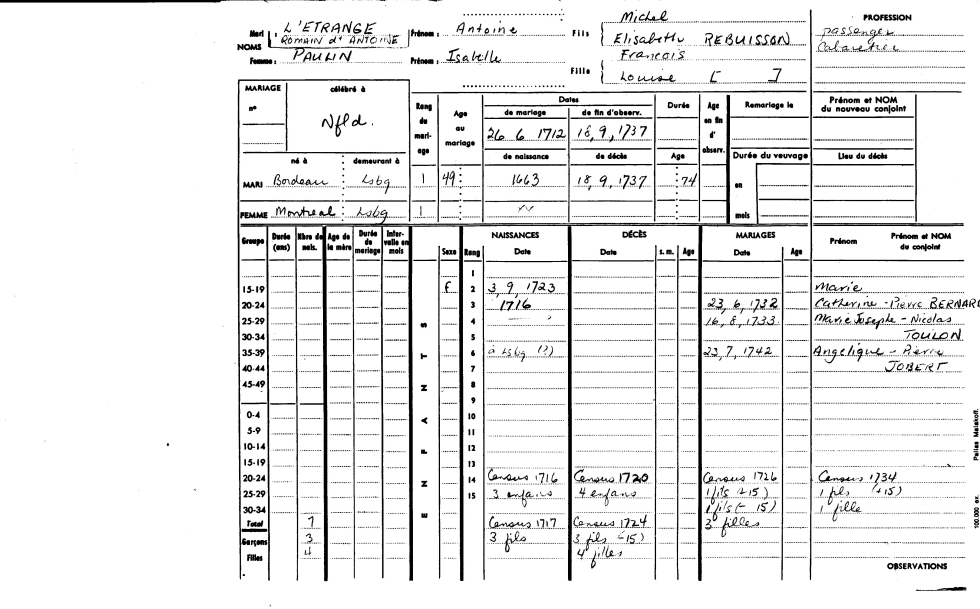 Mari : L'ETRANGE
ROMAIN d'ANTOINE
Prénom : Antoine
Fils { Michel
Elisabeth REBUISSON
PROFESSION
passenger
Cabaretier
NOMS
Femme : PAULIN
Prénom : Isabelle
Fille { Francois
Louise [ ]
MARIAGE célébré à
n°
Nfld.
Rang du mariage
Age au mariage
Dates
de mariage de fin d'observ.
26 6 1712 18, 9, 1737
Durée
Age en fin d'observ.
Remariage le
Prénom et NOM
du nouveau conjoint
né à demeurant à
de naissance de décès Age
Durée du veuvage
Lieu du décès
MARI Bordeau Lsbg 1 49 1663 18, 9, 1737 74
en
FEMME Montreal Lsbg 1
mois
Groupe Durée (ans) Nbre de nais. Age de la mère Durée de mariage Intervalle en mois
ENFANTS
Sexe Rang
NAISSANCES
Date
DÉCÈS
Date s. m. Age
MARIAGES
Date Age
Prénom
Prénom et NOM
du conjoint
1
15-19 f 2 3, 9, 1723 Marie
20-24 3 1716 23, 6, 1732 Catherine - Pierre BERNARD
25-29 4 16, 8, 1733 Marie Josephe - Nicolas
30-34 5 TOULON
35-39 6 à Lsbg (?) 23, 7, 1742 Angelique - Pierre
40-44 7 JOBERT
45-49 8
9
0-4 10
5-9 11
10-14 12
15-19 13
20-24 14 Census 1716 Census 1720 Census 1726 Census 1734
25-29 15 3 enfans 4 enfans 1 fils (+15) 1 fils (+15)
30-34 1 fils (- 15) 1 fille
Total 7 Census 1717 Census 1724 3 filles
Garçons 3 3 fils 3 fils (-15)
Filles 4 4 filles
OBSERVATIONS
100.000 ex.